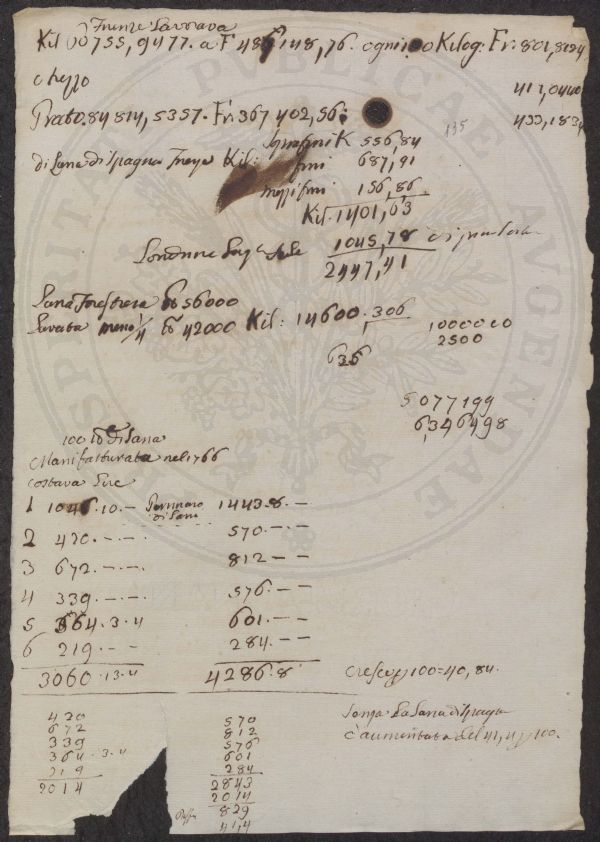 Firenze Lavorava
Kil 00755,9477. a F 486148,76. ogni 100 Kilog: Fr: 801,8224
e Mezzo
412,0440
Prato. 84 814,5357. Fr: 367 402,56:
433,183
135
K 556,84
di Lana di Spagna Kil: fini 687,91
Mezzi fini 156,86
Kil. 1401,63
1045,78
2447,41
Lana Forestiera lb 56000
Lavata meno 1/4 lb 42000 Kil: 14600.306
636
1000000
2500
5077199
6,346498
100 lb di Lana
Manifatturata nel 1766
costava Lire
1 1046.10.— Gennaro di Lana 1443.8.—
2 420.—.— 570.— —
3 672.—.— 812 — —
4 339.—.— 576.— —
5 364.3.4 601.— —
6 219.— — 284.— —
3060.13.4 4286.8
100=40,84.
420 570
672 812
339 576
364.3.4 601
219 284
2014 2843
2014
829
41,4
senza La Lana di Spagna
è aumentata del 41,4 p 100.